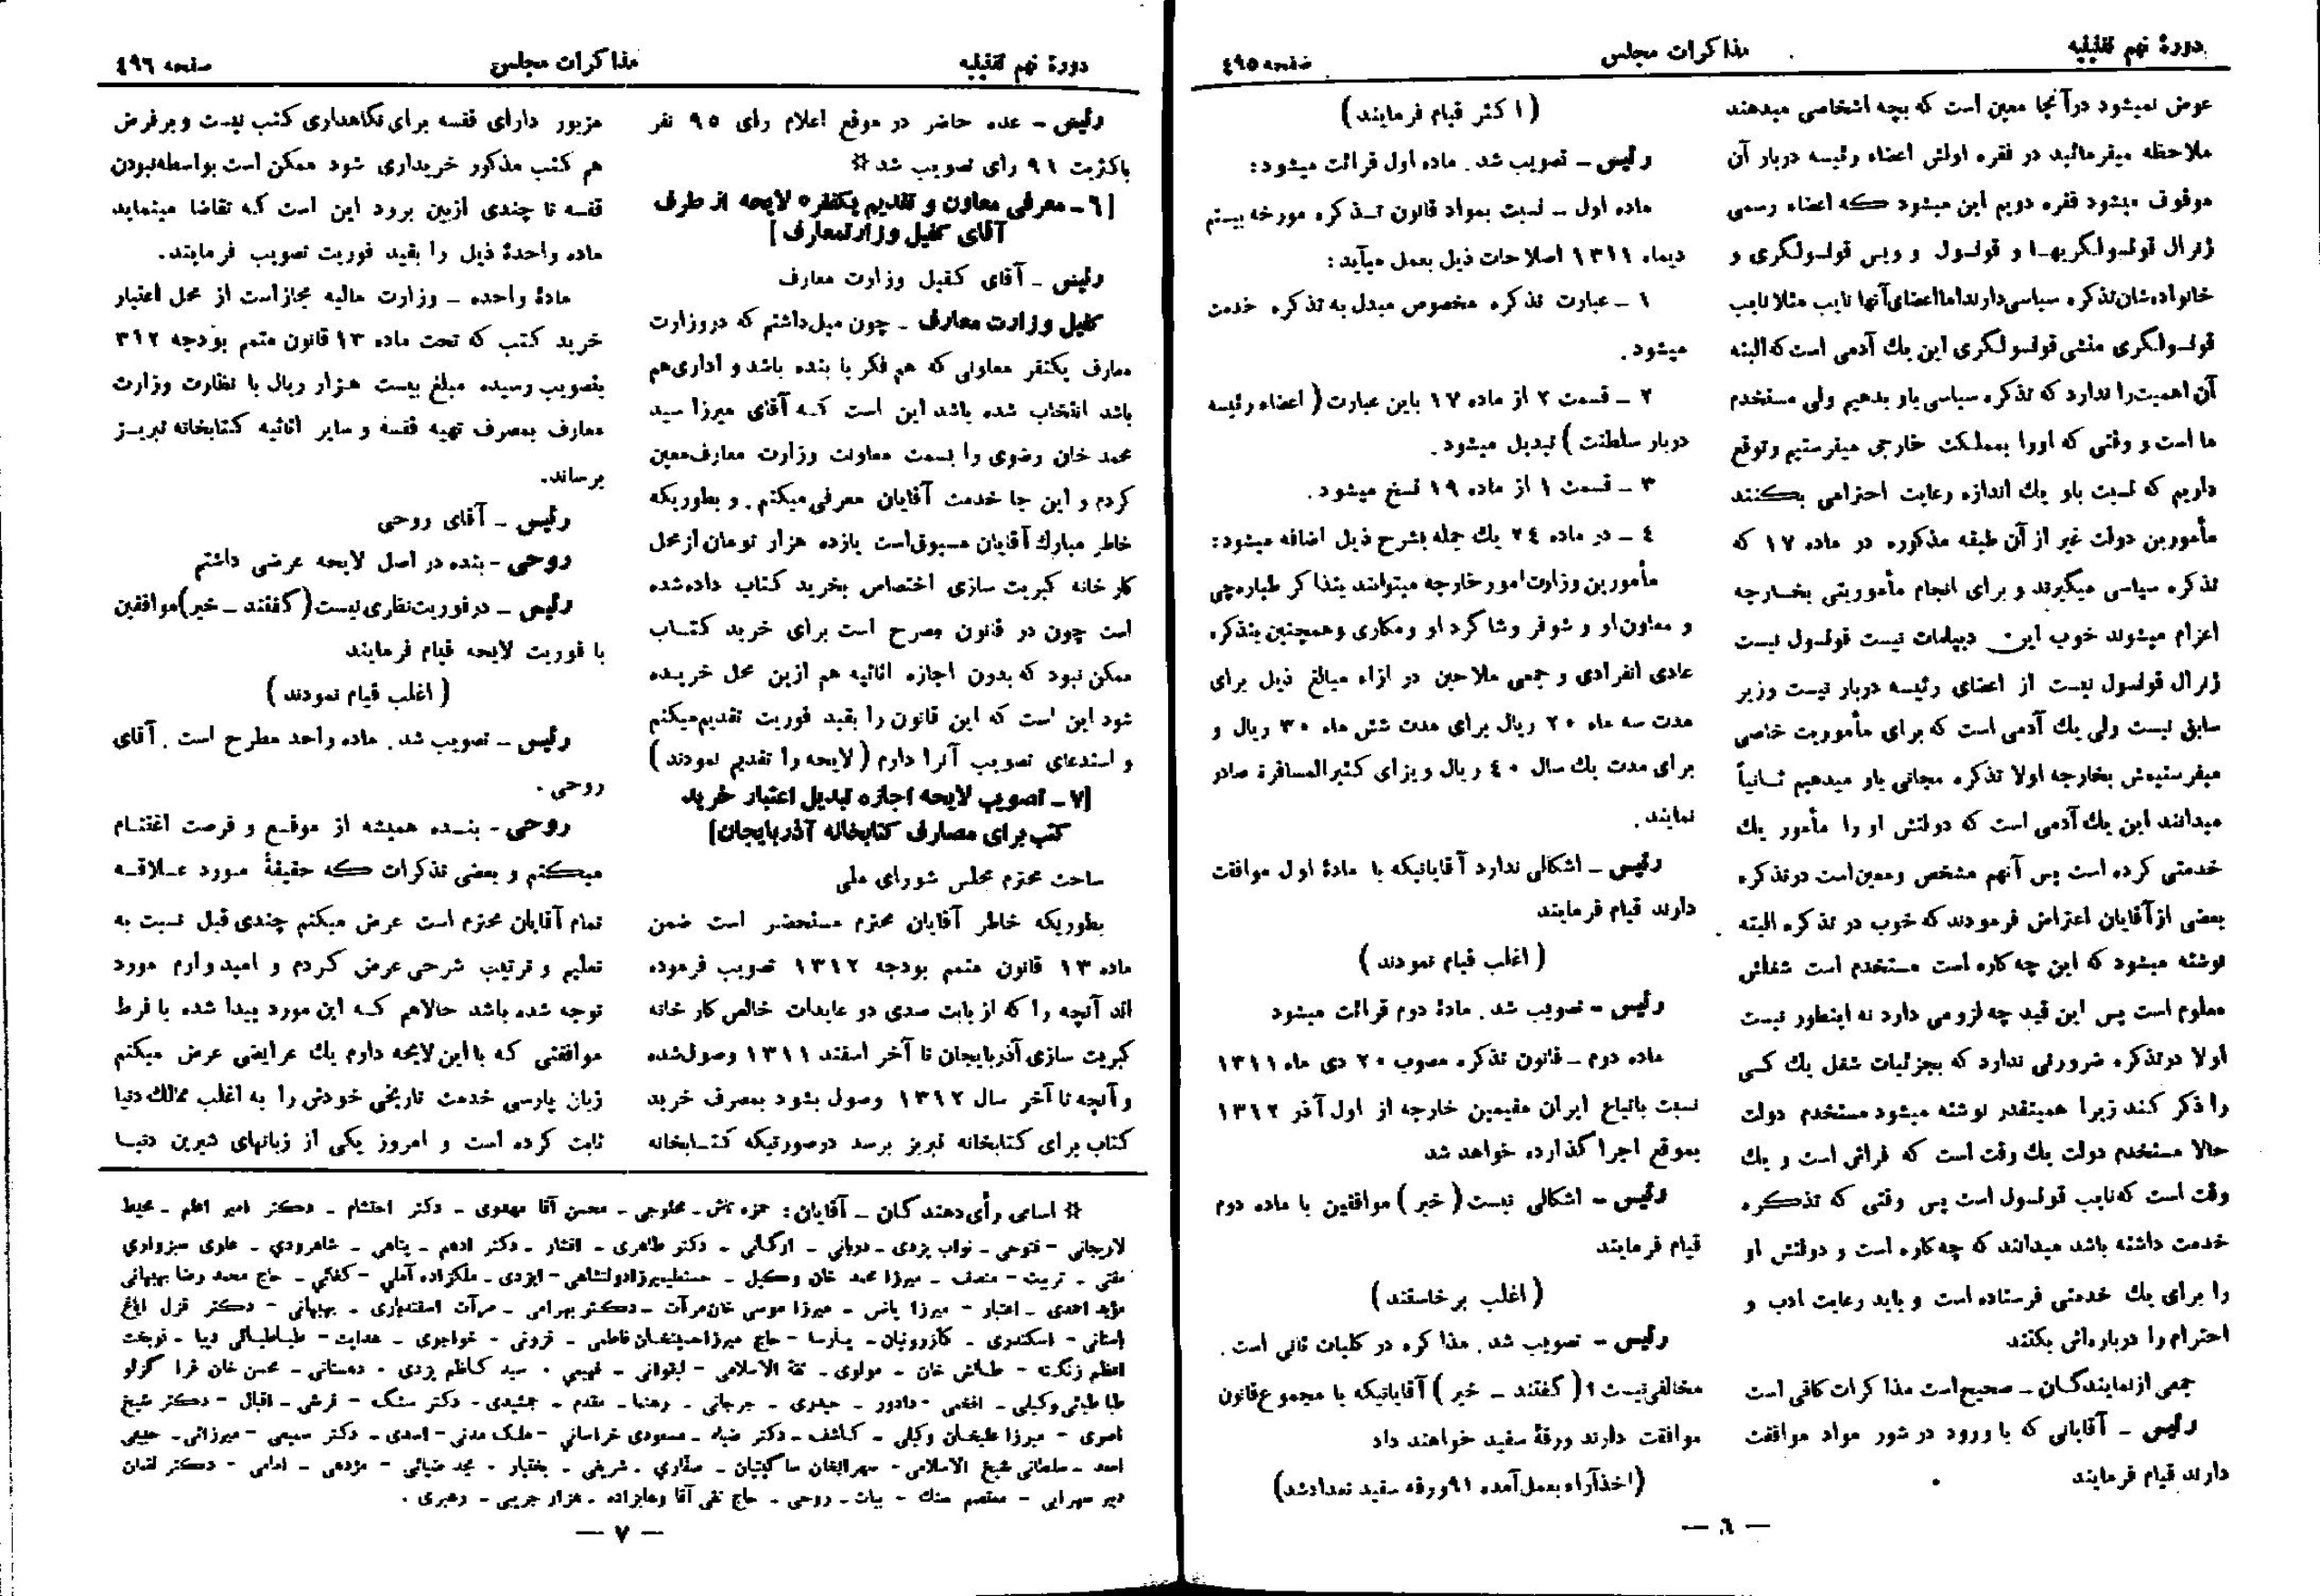 دورهٔ نهم تقنینیه
مذاکرات مجلس
صفحه ٤٩٥
عوض نمیشود درآنجا معین است که بچه اشخاصی میدهند
ملاحظه میفرمائید در فقره اولش اعضاء رئیسه دربار آن
موقوف میشود فقره دویم این میشود که اعضاء رسمی
ژنرال قونسولگریها و قونسول و ویس قونسولگری و
خانواده‌شان تذکره سیاسی دارند اما اعضای آنها نایب مثلا نایب
قونسولگری منشی قونسولگری این یك آدمی است که البته
آن اهمیت را ندارد که تذکره سیاسی باو بدهیم ولی مستخدم
ما است و وقتی که اورا بمملکت خارجی میفرستیم وتوقع
داریم که نسبت باو یك اندازه رعایت احترامی بکنند
مأمورین دولت غیر از آن طبقه مذکوره در ماده ١٧ که
تذکره سیاسی میگیرند و برای انجام مأموریتی بخارجه
اعزام میشوند خوب این دیپلمات نیست قونسول نیست
ژنرال قونسول نیست از اعضای رئیسه دربار نیست وزیر
سابق نیست ولی یك آدمی است که برای مأموریت خاصی
میفرستیمش بخارجه اولا تذکره مجانی باو میدهیم ثانیاً
میدانند این یك آدمی است که دولتش او را مأمور یك
خدمتی کرده است پس آنهم مشخص ومعین است درتذکره
بعضی ازآقایان اعتراض فرمودند که خوب در تذکره البته
نوشته میشود که این چه کاره است مستخدم است شغلش
معلوم است پس این قید چه لزومی دارد نه اینطور نیست
اولا درتذکره ضرورتی ندارد که بجزئیات شغل یك کسی
را ذکر کند زیرا همینقدر نوشته میشود مستخدم دولت
حالا مستخدم دولت یك وقت است که فراش است و یك
وقت است که نایب قونسول است پس وقتی که تذکره
خدمت داشته باشد میدانند که چه کاره است و دولتش او
را برای یك خدمتی فرستاده است و باید رعایت ادب و
احترام را درباره‌اش بکنند
جمعی ازنمایندگان ــ صحیح است مذاکرات کافی است
رئیس ــ آقایانی که با ورود در شور مواد موافقت
دارند قیام فرمایند
(اکثر قیام فرمایند)
رئیس ــ تصویب شد. ماده اول قرائت میشود:
ماده اول ــ نسبت بمواد قانون تذکره مورخه بیستم
دیماه ١٣١١ اصلاحات ذیل بعمل میآید:
١ ــ عبارت تذکره مخصوص مبدل به تذکره خدمت
میشود.
٢ ــ قسمت ٢ از ماده ١٧ باین عبارت (اعضاء رئیسه
دربار سلطنت) تبدیل میشود.
٣ ــ قسمت ١ از ماده ١٩ نسخ میشود.
٤ ــ در ماده ٢٤ یك جمله بشرح ذیل اضافه میشود:
مأمورین وزارت امور خارجه میتوانند بتذاکر طیاره‌چی
و معاون او و شوفر وشاگرد او ومکاری وهمچنین بتذکره
عادی انفرادی و جمعی ملاحین در ازاء مبالغ ذیل برای
مدت سه ماه ٢٠ ریال برای مدت شش ماه ٣٠ ریال و
برای مدت یك سال ٤٠ ریال ویزای کثیرالمسافرة صادر
نمایند.
رئیس ــ اشکالی ندارد آقایانیکه با مادهٔ اول موافقت
دارند قیام فرمایند
(اغلب قیام نمودند)
رئیس ــ تصویب شد. مادهٔ دوم قرائت میشود
ماده دوم ــ قانون تذکره مصوب ٢٠ دی ماه ١٣١١
نسبت باتباع ایران مقیمین خارجه از اول آذر ١٣١٢
بموقع اجرا گذارده خواهد شد
رئیس ــ اشکالی نیست (خیر) موافقین با ماده دوم
قیام فرمایند
(اغلب برخاستند)
رئیس ــ تصویب شد. مذاکره در کلیات ثانی است.
مخالفی نیست؟ (گفتند ــ خیر) آقایانیکه با مجموع قانون
موافقت دارند ورقهٔ سفید خواهند داد
(اخذآراء بعمل آمده ٩١ ورقه سفید تعدادشد)
— ٦ —
دورهٔ نهم تقنینیه
مذاکرات مجلس
صفحه ٤٩٦
رئیس ــ عده حاضر در موقع اعلام رأی ٩٥ نفر
باکثریت ٩١ رأی تصویب شد※
[٦ ــ معرفی معاون و تقدیم یکفقره لایحه از طرف
آقای کفیل وزارتمعارف]
رئیس ــ آقای کفیل وزارت معارف
کفیل وزارت معارف ــ چون میل داشتم که در وزارت
معارف یکنفر معاونی که هم فکر با بنده باشد و اداری هم
باشد انتخاب شده باشد این است که آقای میرزا سید
محمد خان رضوی را بسمت معاونت وزارت معارف معین
کردم و این جا خدمت آقایان معرفی میکنم. و بطوریکه
خاطر مبارك آقایان مسبوق است یازده هزار تومان از محل
کارخانه کبریت سازی اختصاص بخرید کتاب داده شده
است چون در قانون مصرح است برای خرید کتاب
ممکن نبود که بدون اجازه اثاثیه هم ازین محل خریده
شود این است که این قانون را بقید فوریت تقدیم میکنم
و استدعای تصویب آنرا دارم (لایحه را تقدیم نمودند)
[٧ ــ تصویب لایحه اجازه تبدیل اعتبار خرید
کتب برای مصارف کتابخانه آذربایجان]
ساحت محترم مجلس شورای ملی
بطوریکه خاطر آقایان محترم مستحضر است ضمن
ماده ١٣ قانون متمم بودجه ١٣١٢ تصویب فرموده
اند آنچه را که از بابت صدی دو عایدات خالص کارخانه
کبریت سازی آذربایجان تا آخر اسفند ١٣١١ وصول شده
و آنچه تا آخر سال ١٣١٢ وصول بشود بمصرف خرید
کتاب برای کتابخانه تبریز برسد درصورتیکه کتابخانه
مزبور دارای قفسه برای نگاهداری کتب نیست و برفرض
هم کتب مذکور خریداری شود ممکن است بواسطه نبودن
قفسه تا چندی ازبین برود این است که تقاضا مینماید
ماده واحدهٔ ذیل را بقید فوریت تصویب فرمایند.
مادهٔ واحده ــ وزارت مالیه مجاز است از محل اعتبار
خرید کتب که تحت ماده ١٣ قانون متمم بودجه ٣١٢
بتصویب رسیده مبلغ بیست هزار ریال با نظارت وزارت
معارف بمصرف تهیه قفسه و سایر اثاثیه کتابخانه تبریز
برساند.
رئیس ــ آقای روحی
روحی ــ بنده در اصل لایحه عرضی داشتم
رئیس ــ درفوریت نظری نیست (گفتند ــ خیر) موافقین
با فوریت لایحه قیام فرمایند
(اغلب قیام نمودند)
رئیس ــ تصویب شد. ماده واحد مطرح است. آقای
روحی.
روحی ــ بنده همیشه از موقع و فرصت اغتنام
میکنم و بعضی تذکرات که حقیقةً مورد علاقه
تمام آقایان محترم است عرض میکنم چندی قبل نسبت به
تعلیم و تربیت شرحی عرض کردم و امیدوارم مورد
توجه شده باشد حالاهم که این مورد پیدا شده با فرط
موافقتی که با این لایحه دارم یك عرایضی عرض میکنم
زبان پارسی خدمت تاریخی خودش را به اغلب ممالك دنیا
ثابت کرده است و امروز یکی از زبانهای شیرین دنیا
※ اسامی رأی دهندگان ــ آقایان: حمزه تاش ــ مخلوجی ــ محسن آقا مهدوی ــ دکتر احتشام ــ دکتر امیر اعلم ــ محیط
لاریجانی ــ فتوحی ــ نواب یزدی ــ دربانی ــ ارگانی ــ دکتر طاهری ــ افشار ــ دکتر ادهم ــ پناهی ــ شاهرودی ــ علوی سبزواری
مفتی ــ تربیت ــ منصف ــ میرزا محمد خان وکیل ــ حسنعلیمیرزا دولتشاهی ــ ایزدی ــ ملکزاده آملی ــ کفائی ــ حاج محمد رضا بهبهانی
مؤید احمدی ــ اعتبار ــ میرزا یانس ــ میرزا موسی خان مرآت ــ دکتر بهرامی ــ مرآت اسفندیاری ــ بهبهانی ــ دکتر قزل ایاغ
باستانی ــ اسکندری ــ کازرونیان ــ پارسا ــ حاج میرزا حسینخان فاطمی ــ قزونی ــ خواجوی ــ هدایت ــ طباطبائی دیبا ــ نوبخت
اعظم زنگنه ــ طالش خان ــ مولوی ــ ثقة الاسلامی ــ لیقوانی ــ فهیمی ــ سید کاظم یزدی ــ دهستانی ــ محسن خان قرا گزلو
طباطبائی وکیلی ــ افخمی ــ دادور ــ حیدری ــ جرجانی ــ رهنما ــ مقدم ــ جمشیدی ــ دکتر سنگ ــ قرشی ــ اقبال ــ دکتر شیخ
ناصری ــ میرزا علیخان وکیلی ــ کاشف ــ دکتر ضیاء ــ مسعودی خراسانی ــ ملک مدنی ــ اسدی ــ دکتر سمیعی ــ میرزائی ــ حبیبی
اسعد ــ سلطانی شیخ الاسلامی ــ سهرابخان ساگینیان ــ صفاری ــ شریفی ــ بختیار ــ مجد ضیائی ــ مژدهی ــ امامی ــ دکتر لقمان
دبیر سهرابی ــ معتصم سنك ــ بیات ــ روحی ــ حاج تقی آقا وهابزاده ــ هزار جریبی ــ رهبری.
— ٧ —